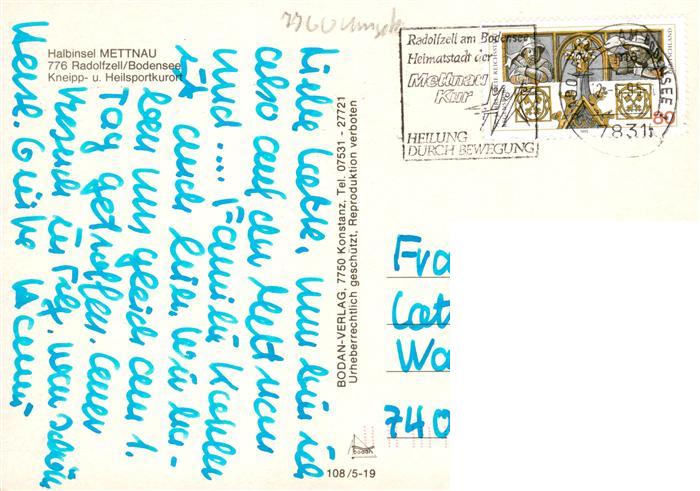 Halbinsel METTNAU
776 Radolfzell/Bodensee
Kneipp- u. Heilsportkurort
Radolfzell am Bodensee
Heimatstadt der
Mettnau
Kur
HEILUNG
DURCH BEWEGUNG
80
7831
Liebe Lotte, nun bin ich
also auf der Mettnau
und .... Familie
ist auch hier. Wir ha-
ben uns gleich am 1.
Tag getroffen.
Besuch
Grüße
BODAN-VERLAG, 7750 Konstanz, Tel. 07531 - 27721
Urheberrechtlich geschützt, Reproduktion verboten
Fra
Wa
740
bodan
108/5-19